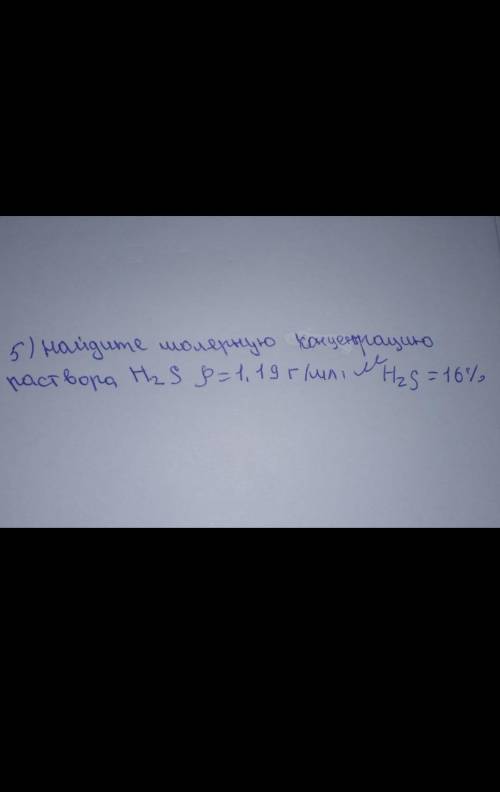 5) найдите молерную концентрацию
раствора H₂S ρ=1,19 г/мл, μ H₂S = 16%